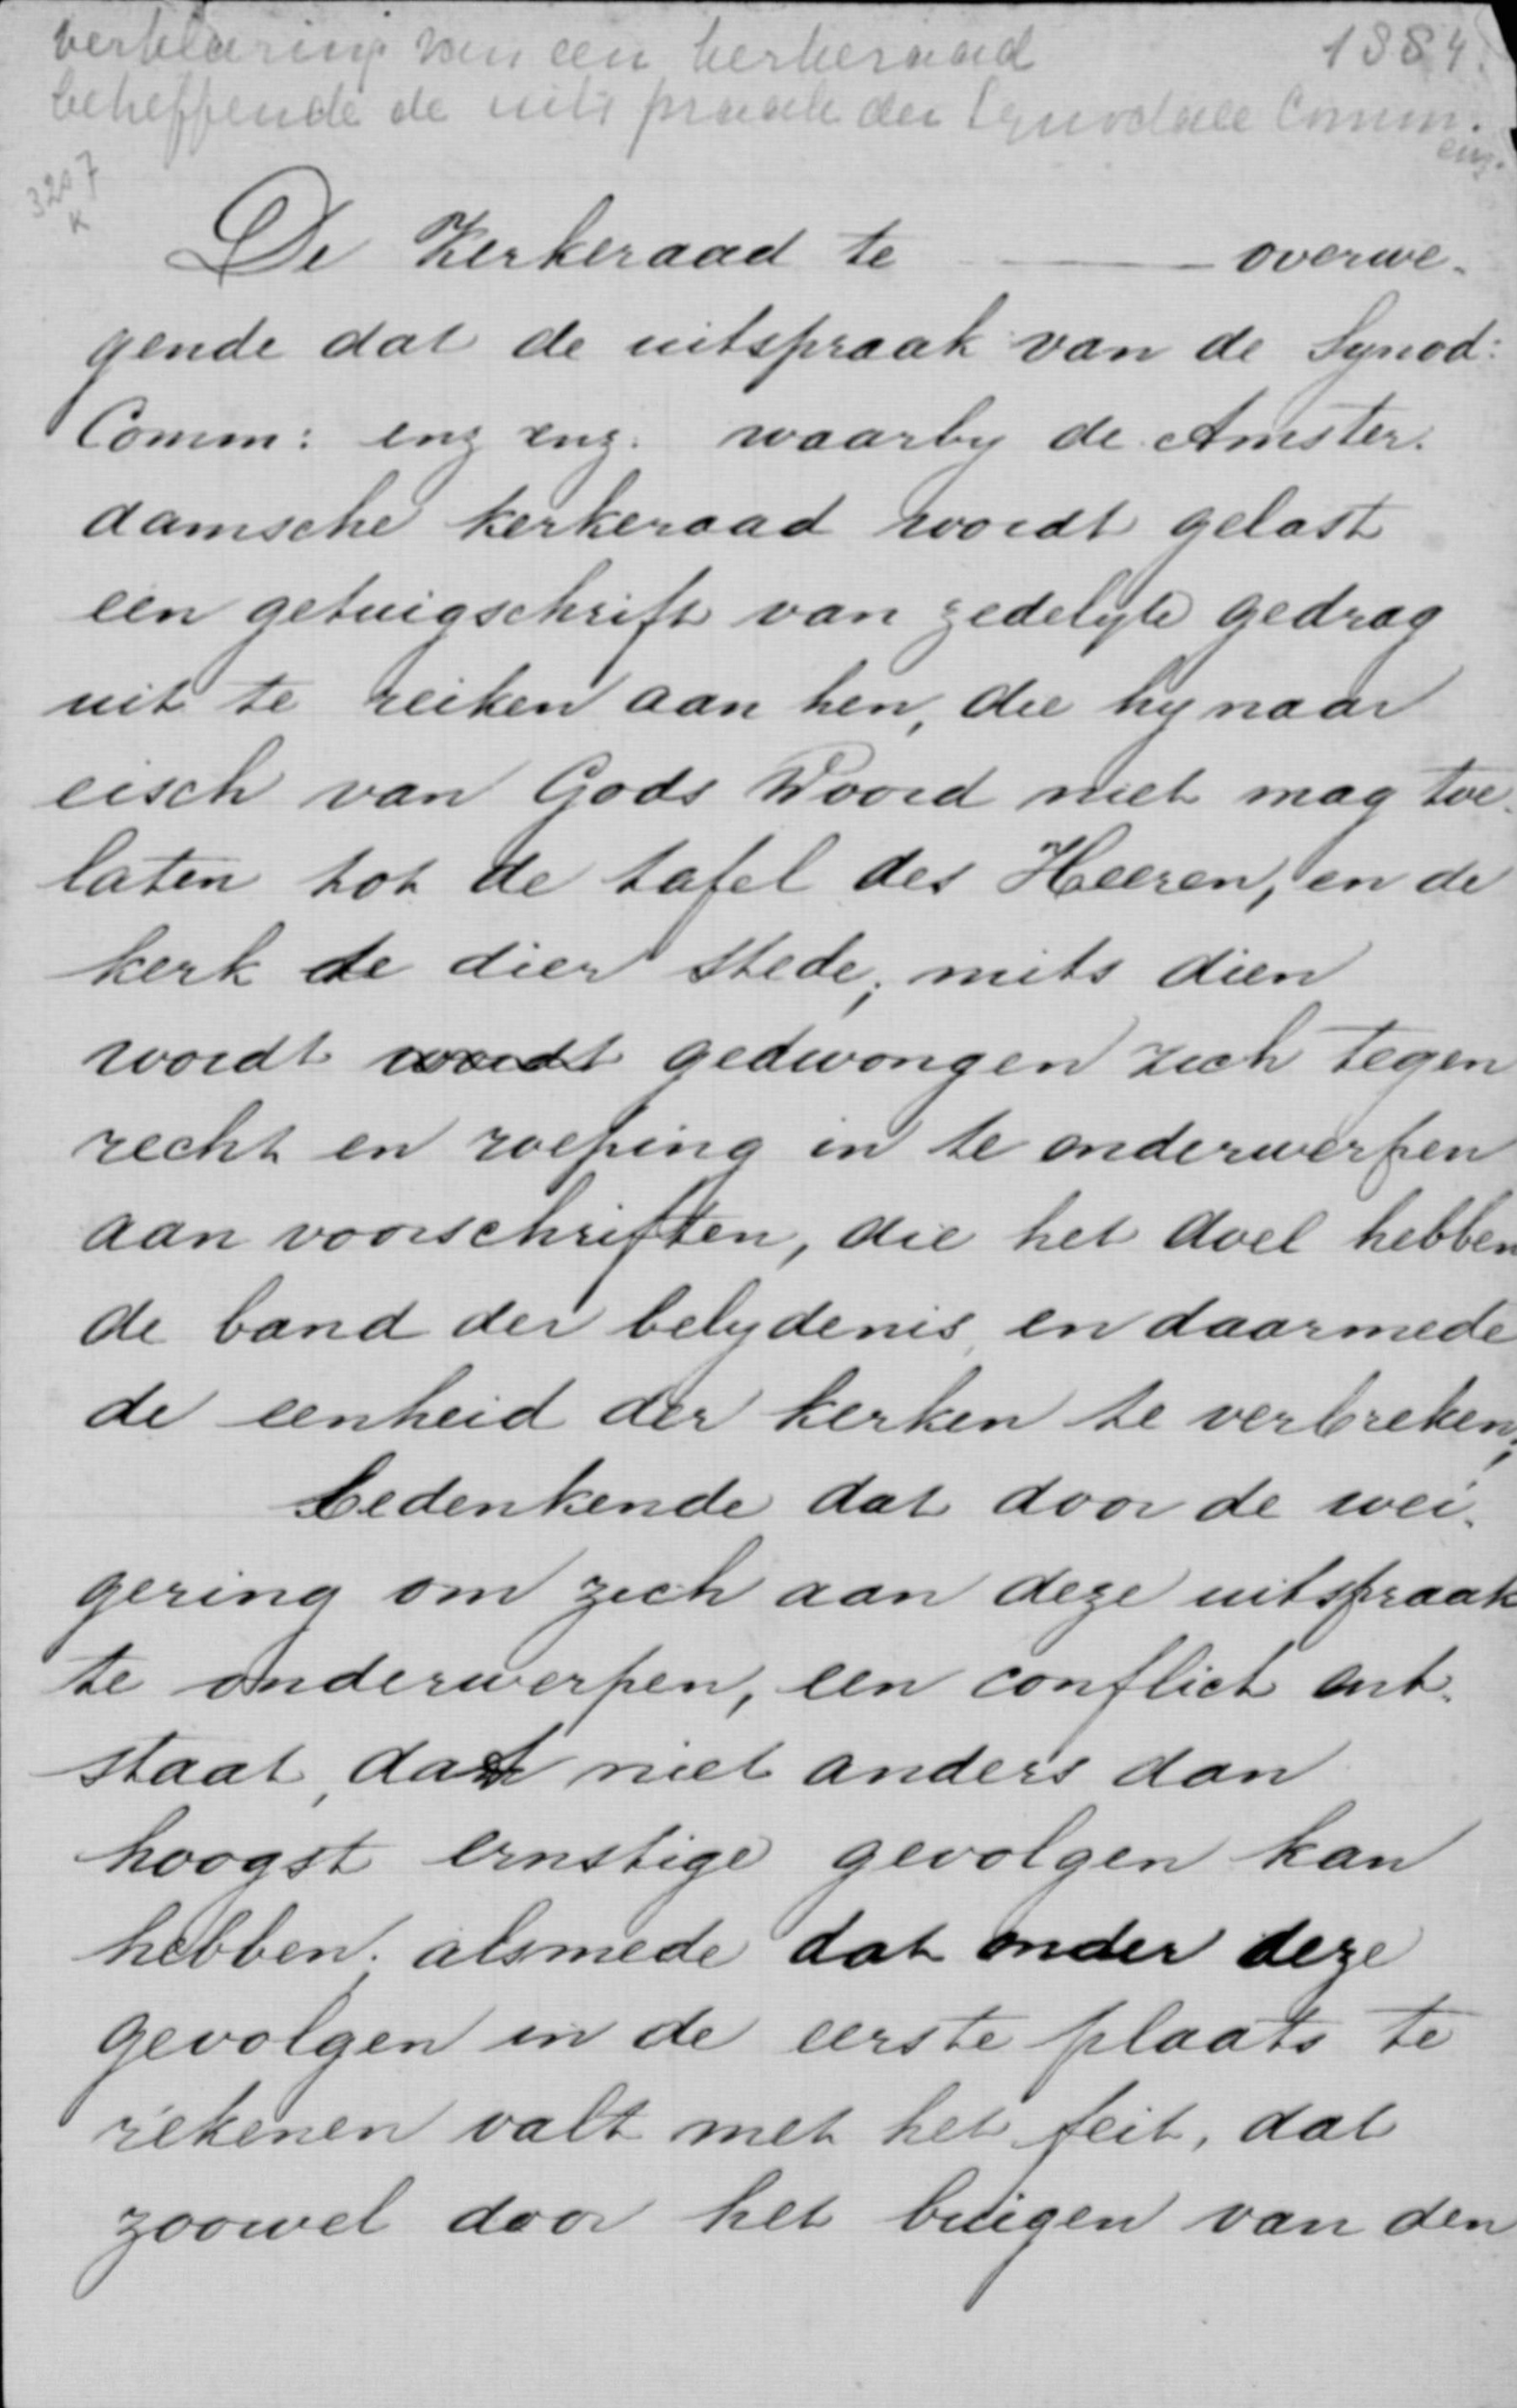 verklaring van een kerkeraad 1884.
betreffende de uitspraak der Synodale Comm.
enz.
3207
K
De Kerkeraad te ——— overwe-
gende dat de uitspraak van de Synod:
Comm: enz enz. waarby de Amster-
damsche kerkeraad wordt gelast
een getuigschrift van zedelyk gedrag
uit te reiken aan hen, die hy naar
eisch van Gods Woord niet mag toe-
laten tot de tafel des Heeren, en de
kerk te dier stede, mits dien
wordt wordt gedwongen zich tegen
recht en roeping in te onderwerpen
aan voorschriften, die het doel hebben
de band der belydenis, en daarmede
de eenheid der kerken te verbreken;
bedenkende dat door de wei-
gering om zich aan deze uitspraak
te onderwerpen, een conflict ont-
staat, dat niet anders dan
hoogst ernstige gevolgen kan
hebben; alsmede dat onder deze
gevolgen in de eerste plaats te
rekenen valt met het feit, dat
zoowel door het buigen van den